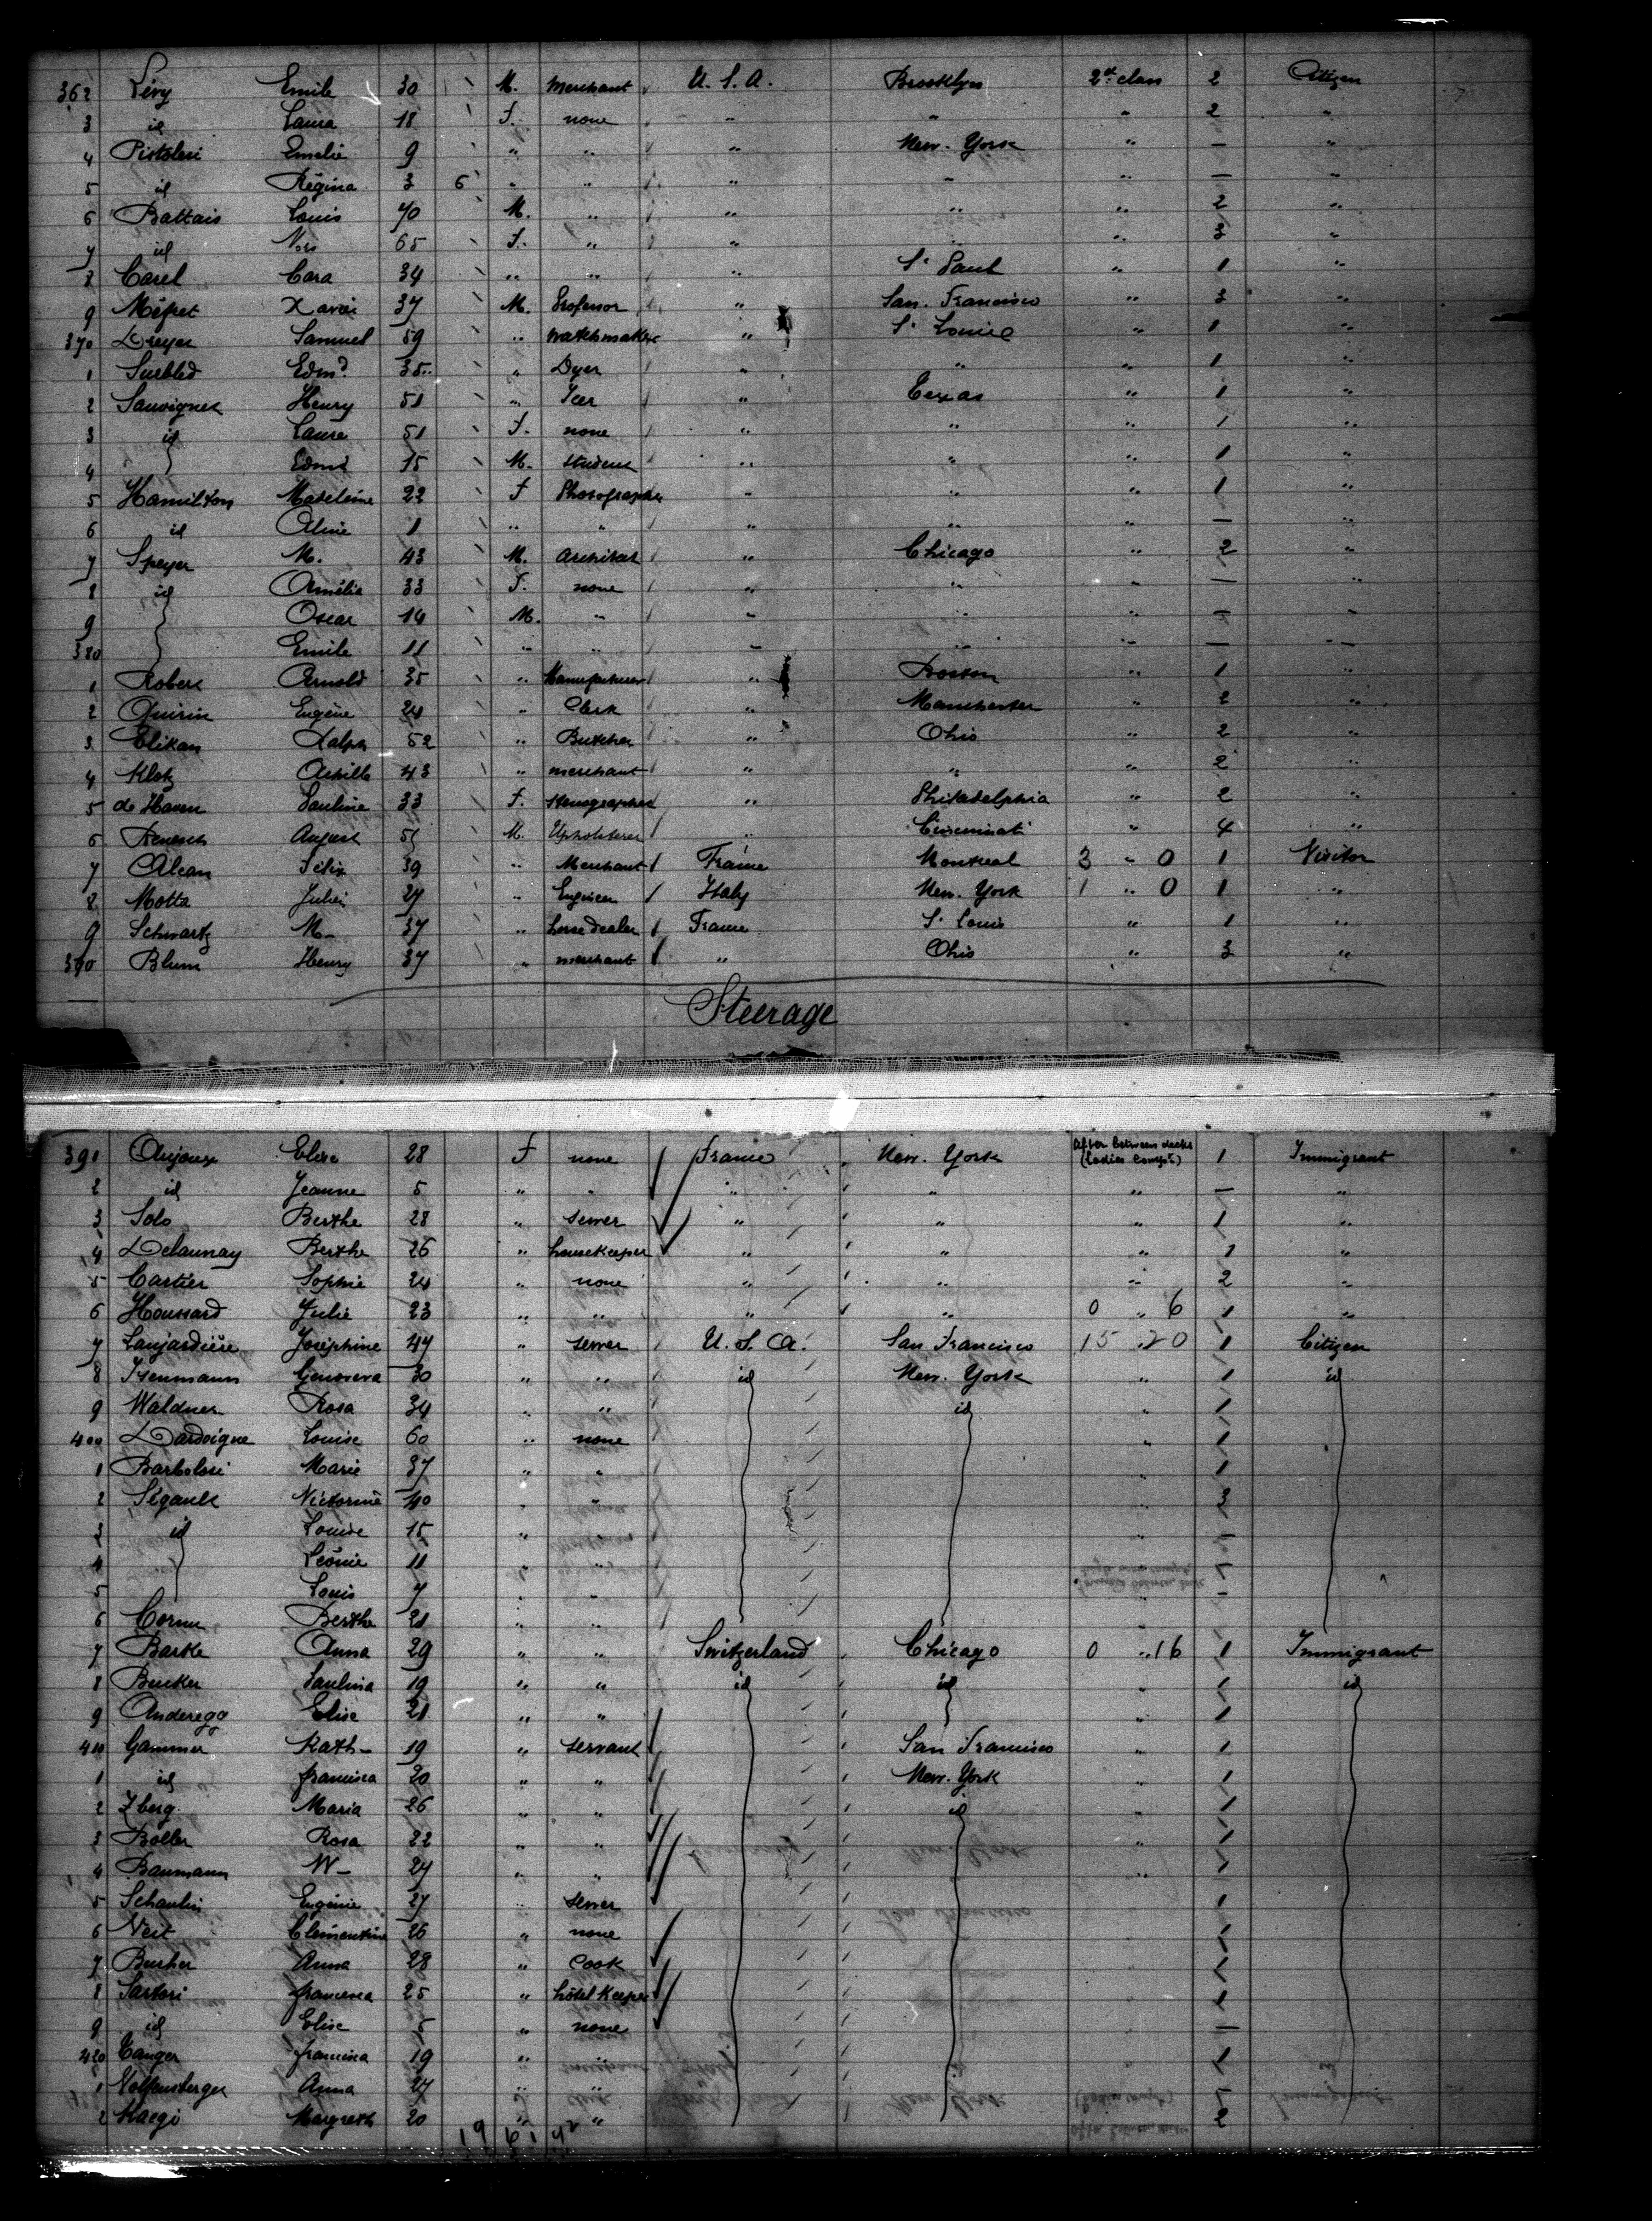 362 Lévy Emile 30 M. Merchant U. S. A. Brooklyn 2d class 2 Citizen
3 id Laura 18 F. none " " " 2 "
4 Pistolesi Emelie 9 " " " New-York " — "
5 id Régina 3 6 " " " " " — "
6 Battais Louis 70 M. " " " " 2 "
7 id 65 F. " " " " 3 "
8 Carel Cara 34 " " " St Paul " 1 "
9 Xavier 37 M. Professor " San Francisco " 3 "
370 Dreyer Samuel 59 " Watchmaker " St Louis " 1 "
1 Surbled Edmd 35 " Dyer " " " 1 "
2 Sauvignet Henry 51 " " Texas " 1 "
3 id Laure 51 F. none " " " 1 "
4 Edmd 15 M. Student " " " 1 "
5 Hamilton Madeleine 22 F Photographer " " " 1 "
6 id Aline 1 " " " " " — "
7 Speyer M. 43 M. Architect " Chicago " 2 "
8 id Amélia 33 F. none " " " — "
9 Oscar 14 M. " " " " — "
380 Emile 11 " " " " " — "
1 Robert Arnold 35 " Manufacturer " Boston " 1 "
2 Quirin Eugène 24 " Clerk " Manchester " 2 "
3 Elikan Ralph 52 " Butcher " Ohio " 2 "
4 Klotz Achille 43 " merchant " " " 2 "
5 de Haven Pauline 33 F. Stenographer " Philadelphia " 2 "
6 August M. Upholsterer " Cincinnati " 4 "
7 Alcan Félix 39 " Merchant France Montreal 3 " 0 1 Visitor
8 Motta Julien 27 " Engineer Italy New-York 1 " 0 1 "
9 Schwartz M— 37 " horse dealer France St Louis " 1 "
390 Blum Henry 37 " merchant " Ohio " 3 "
Steerage
391 Anjoux Elise 28 F none France New-York After between decks (ladies compt) 1 Immigrant
2 id Jeanne 5 " " " " " — "
3 Solo Berthe 28 " sewer " " " 1 "
4 Delaunay Berthe 26 " housekeeper " " " 1 "
5 Cartier Sophie 24 " none " " " 2 "
6 Houssard Julie 23 " " " " 0 " 6 1 "
7 Lanjardière Joséphine 47 " sewer U. S. A. San Francisco 15 " 20 1 Citizen
8 Isenmann Genoveva 30 " " id New-York " 1 id
9 Waldner Rosa 34 " " id " 1
400 Dardoigne Louise 60 " none " 1
1 Bartolosi Marie 37 " " " 1
2 Ségault Victorine 40 " " " 3
3 id Louise 15 " " " —
4 Léonie 11 " " " —
5 Louis 7 " " " —
6 Cornu Berthe 21 " "
7 Barke Anna 29 " " Switzerland Chicago 0 " 16 1 Immigrant
8 Bucker Paulina 19 " " id id " 1 id
9 Anderegg Elise 21 " " " 1
410 Gammer Kath— 19 " servant San Francisco " 1
1 id francisca 20 " " New-York " 1
2 Zberg Maria 26 " " id " 1
3 Boller Rosa 22 " " " 1
4 Baumann W— 24 " " " 1
5 Schaulin Eugénie 27 " sewer 1
6 Veit Clémentine 26 " none 1
7 Bucher Anna 28 " Cook 1
8 Sartori francesca 25 " hôtel Keeper 1
9 id Elise 5 " none —
420 Tanger francisca 19 " " 1
1 Wolfensberger Anna 27 " "
2 Kaegi Margreth 20 " " 2